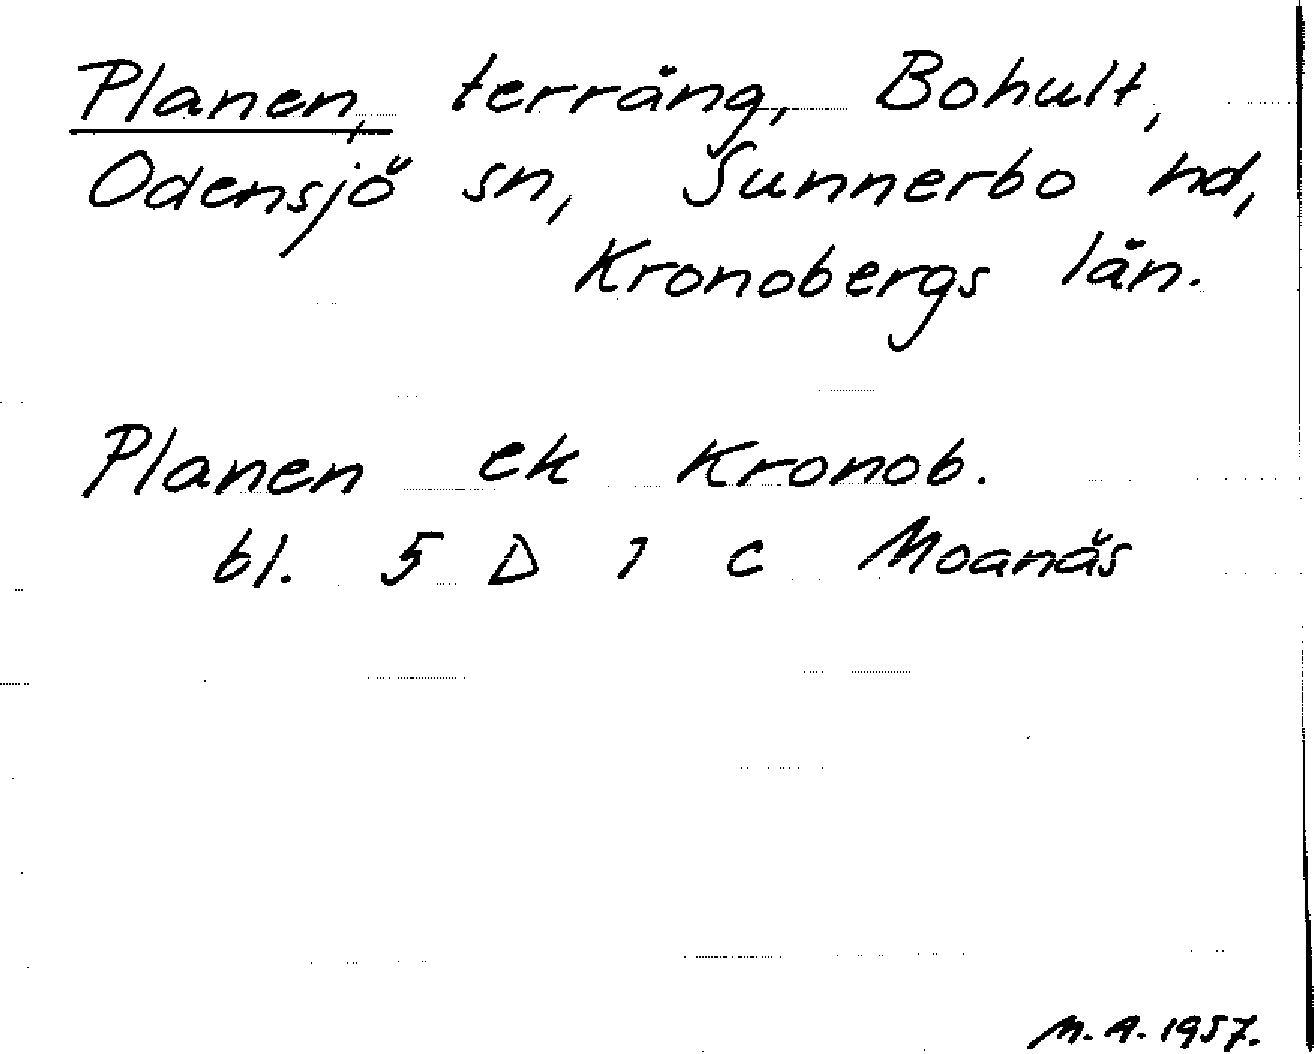 Planen, terräng, Bohult,
Odensjö sn, Sunnerbo hd,
Kronobergs län.
Planen ek Kronob.
bl. 5 D 1 c Moanäs
M. A. 1957.